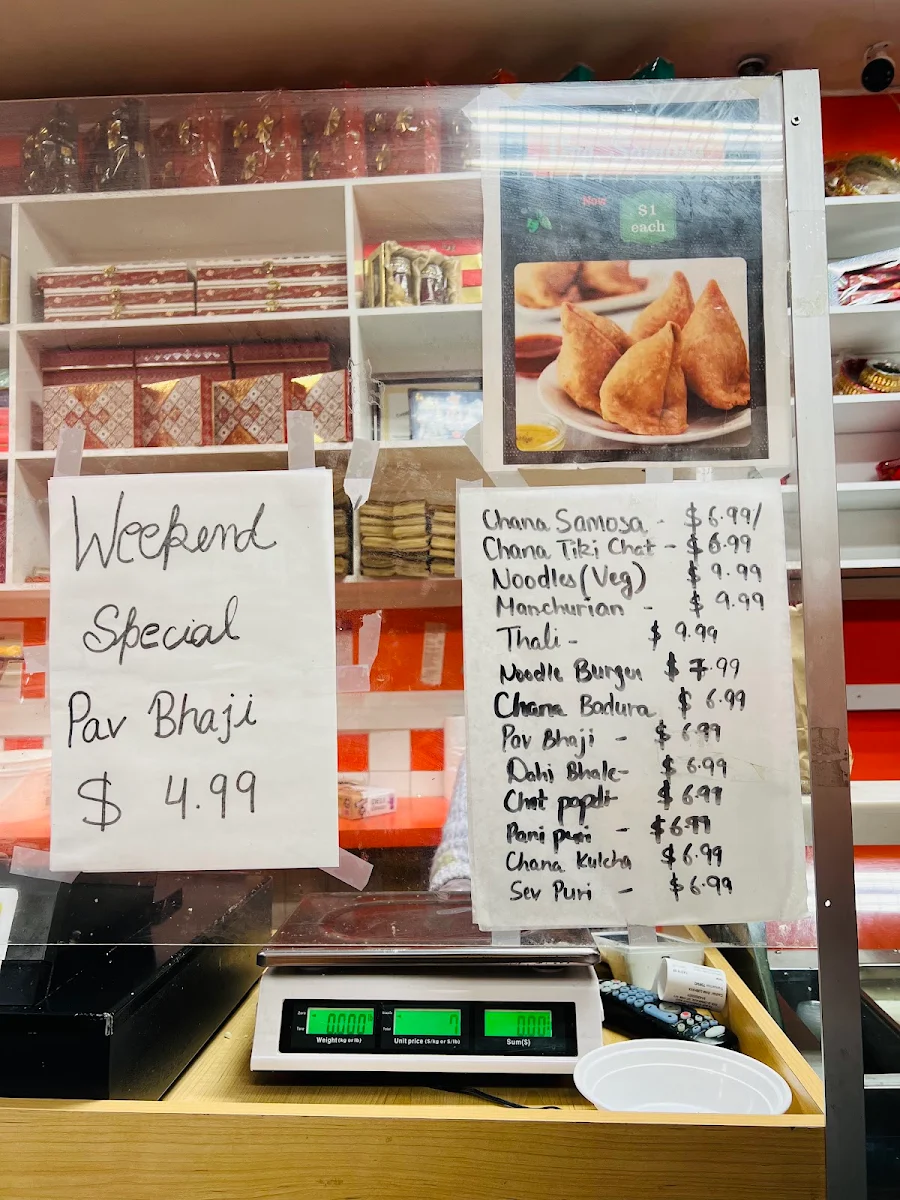 Now
$1
each
Weekend
Special
Pav Bhaji
$ 4.99
Chana Samosa - $6.99/
Chana Tiki Chat - $6.99
Noodles(Veg) $ 9.99
Manchurian - $ 9.99
Thali - $ 9.99
Noodle Burger $ 7.99
Chana Badura $ 6.99
Pav Bhaji - $ 6.99
Dahi Bhale- $ 6.99
Chat papdi $ 6.99
Pani puri - $6.99
Chana Kulcha $6.99
Sev Puri - $6.99
0.000
Weight(kg or lb)
Unit price ($/kg or $/lb)
Sum($)